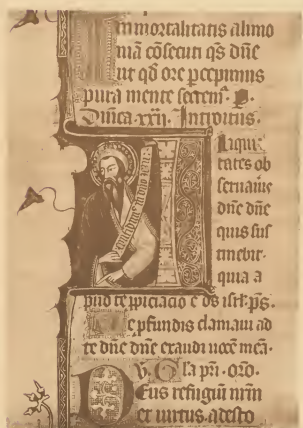 Immortalitatis alimo
nia cōsecuti qs dñe
ut qd ore pcepimus
pura mente sectem᷑. p.
Dñica. xxii. Introitus.
confidimus in dño
I Niqui
tates ob
seruaue
dñe dñe
quis sus
tinebit.
quia a
pud te ꝓpiciacio ē ds isrl. ps.
De pfundis clamaui ad
te dñe dñe exaudi uocē meā.
V. Gla pri. oro.
Deus refugiū nrm
et uirtus. adesto